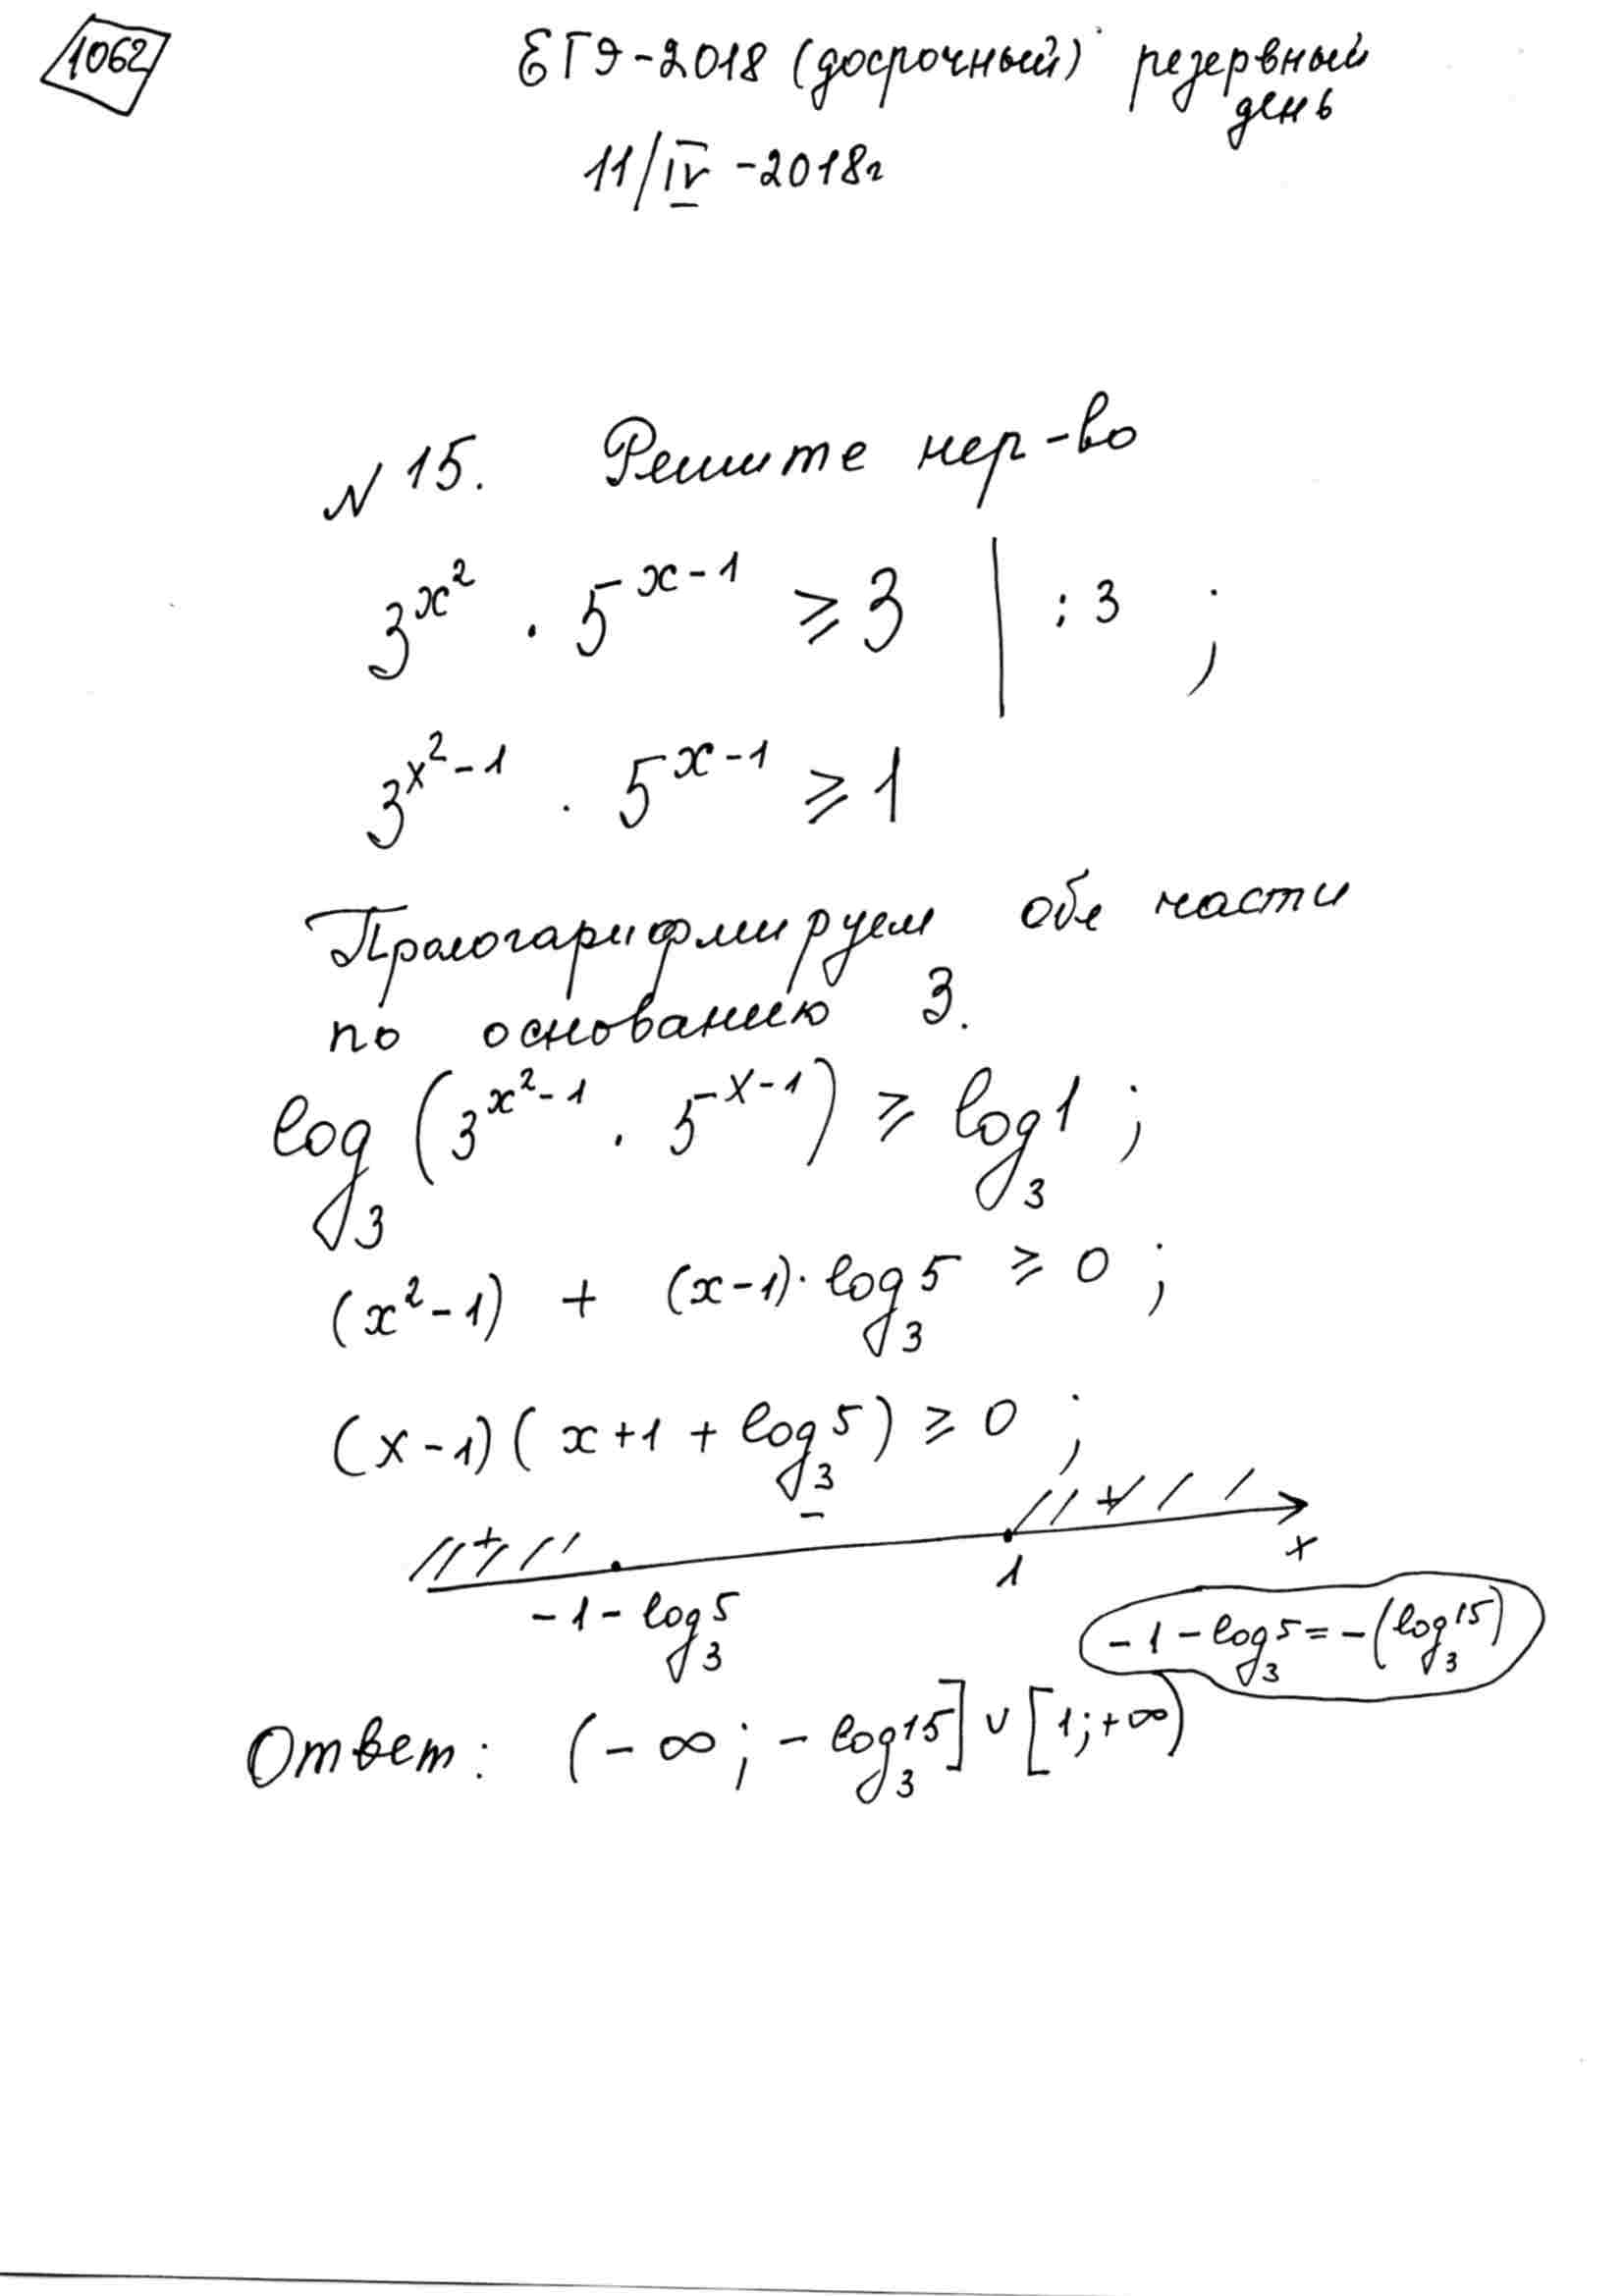 1062
ЕГЭ-2018 (досрочный) резервный
день
11/IV-2018г
N 15. Решите нер-во
3^{x^2} · 5^{x-1} ≥ 3 | : 3 ;
3^{x^2-1} · 5^{x-1} ≥ 1
Прологарифмируем обе части
по основанию 3.
log_3 (3^{x^2-1} · 5^{x-1}) ≥ log_3 1 ;
(x^2-1) + (x-1)· log_3 5 ≥ 0 ;
(x-1)(x+1 + log_3 5) ≥ 0 ;
+ - + x
-1 - log_3 5 1
-1 - log_3 5 = -(log_3 15)
Ответ: (-∞; - log_3 15] ∪ [1; +∞)